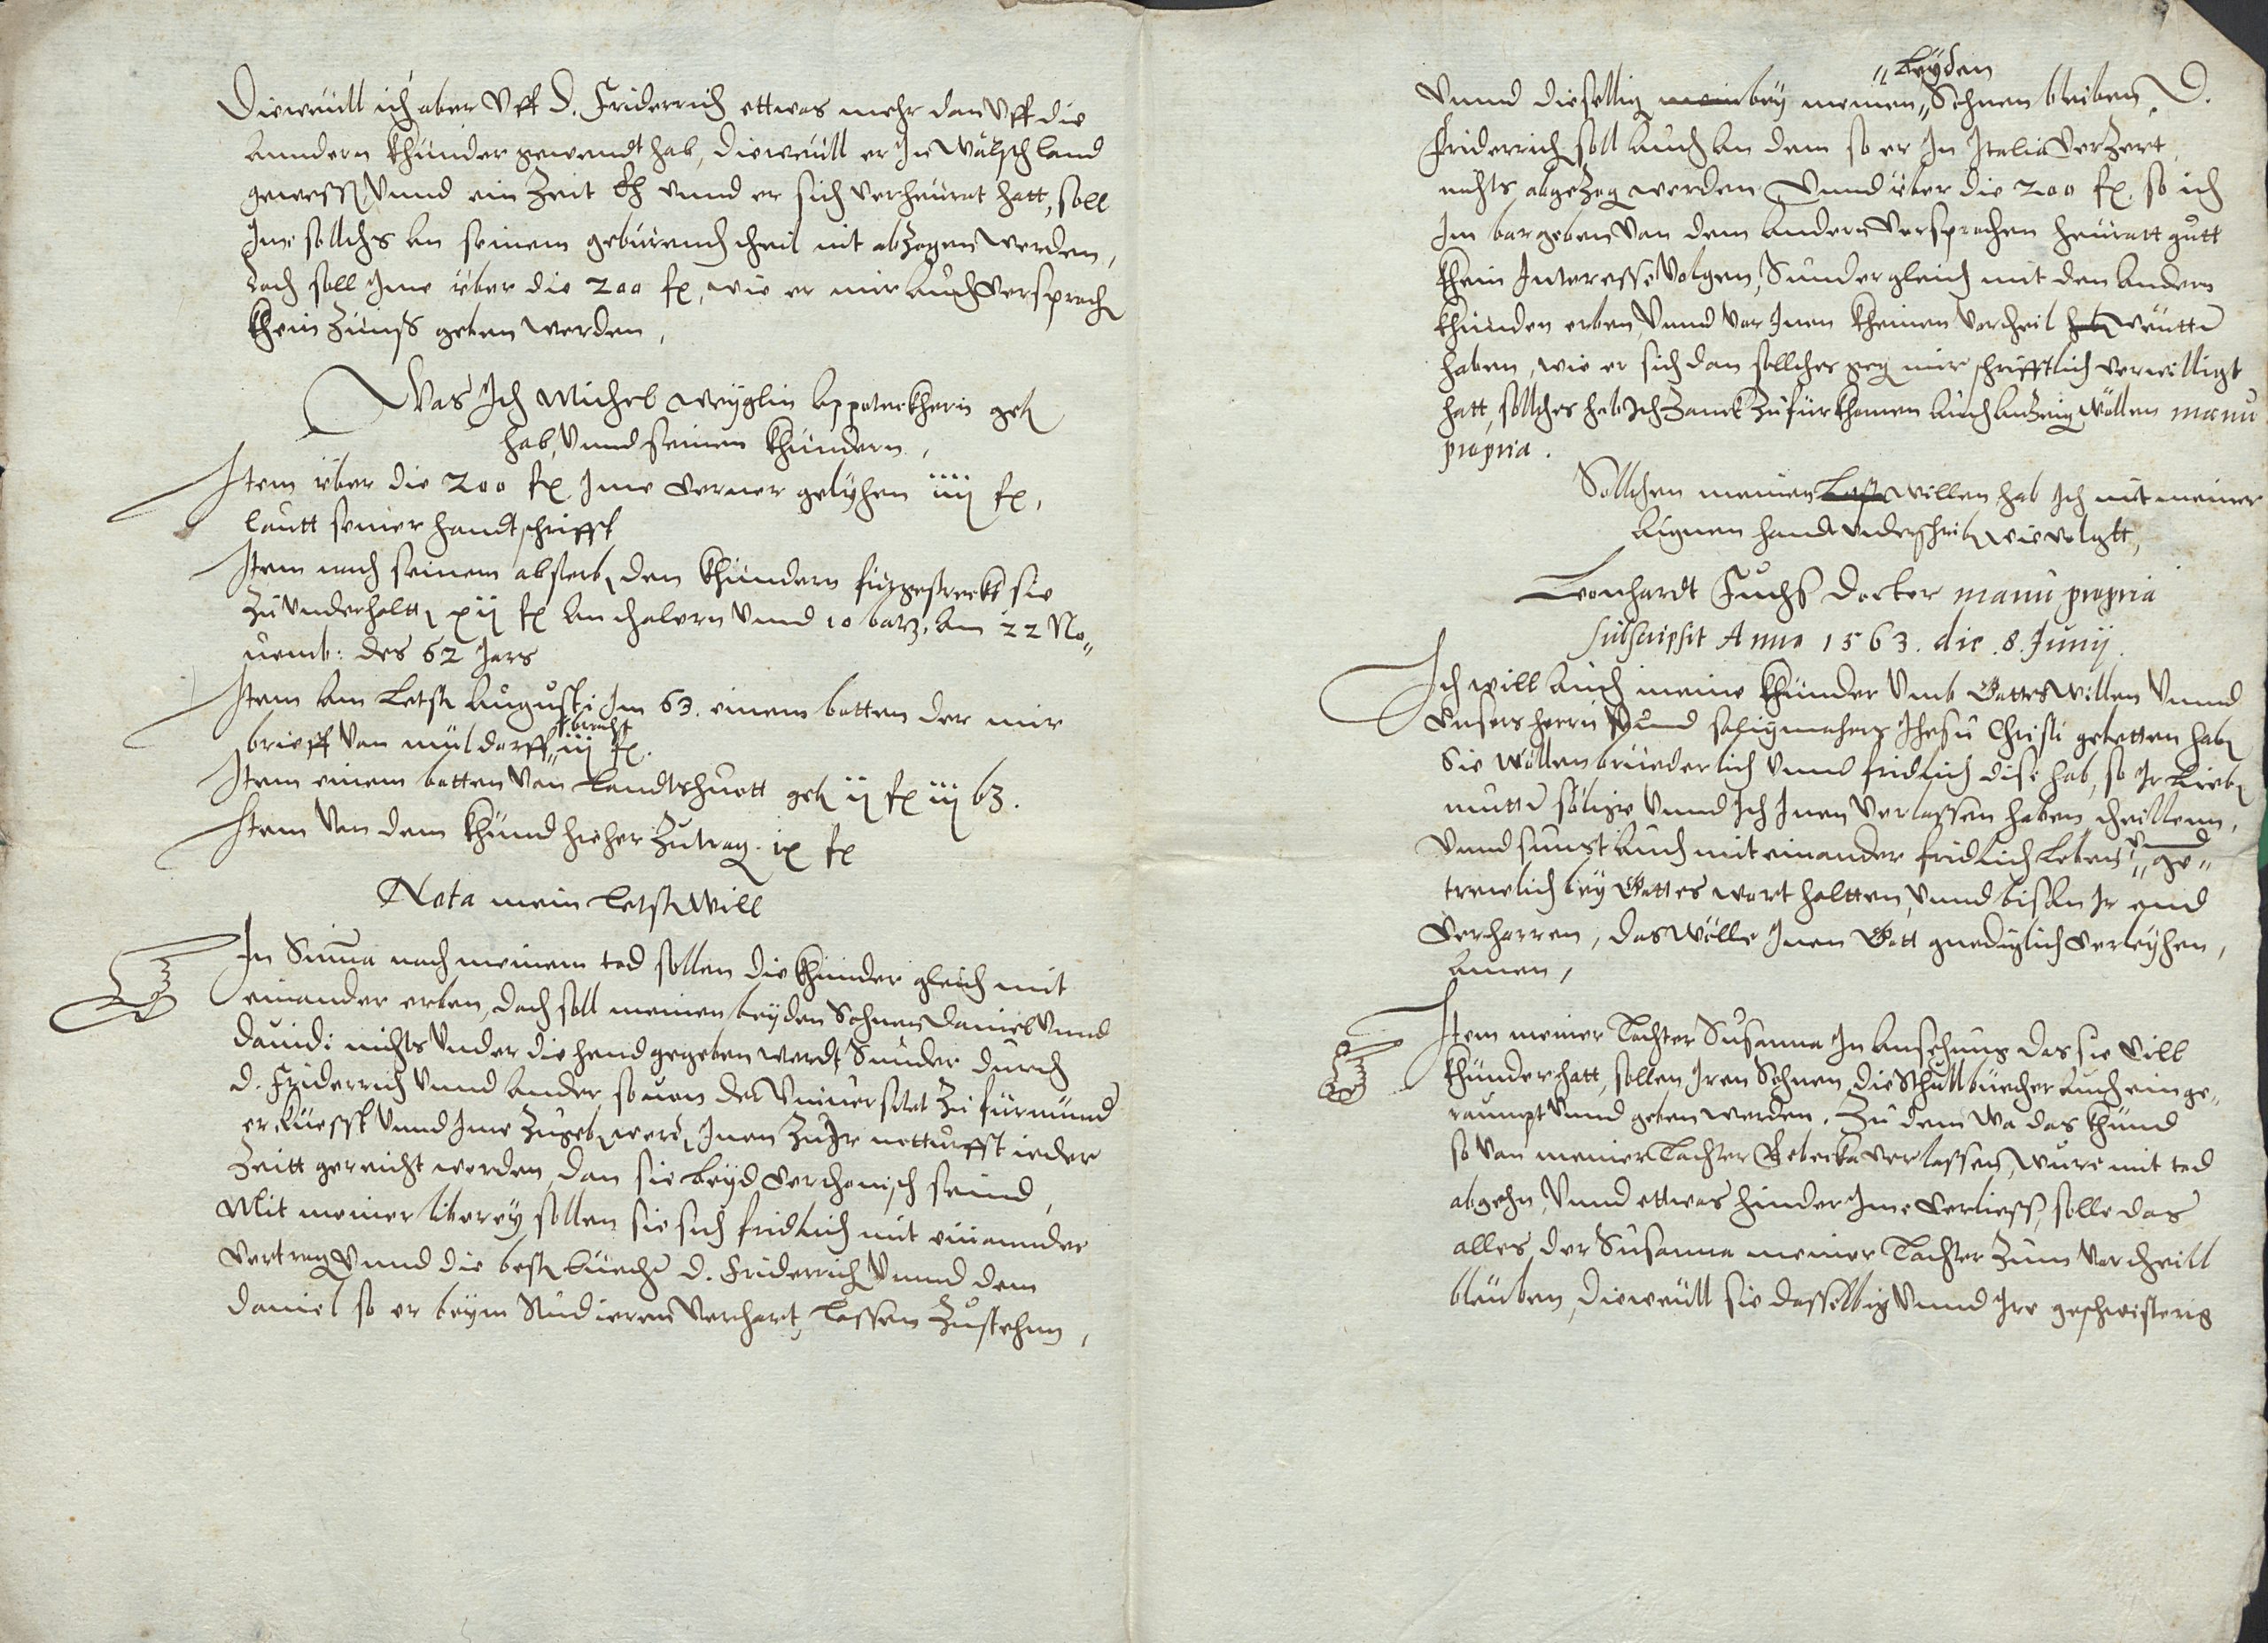 Dieweill ich aber Uff D. Friderrich ettwas mehr dan Uff die
anndern khinder gewendt hab, diewevll er In Wälsch land
gewesß, Unnd ein Zeit Eh unnd er sich verheurat hatt, soll
Ime sollchs an seinem geburend theil nit abzogen werden,
doch soll Ime über die 200 fl, wie er mir auch versproch
khein Zinnß geben werden,
Was Ich Michel Weyglin Appoteckherin geb
hab, Unnd seinen khindern,
Item über die 200 fl. Ime verner gelyhen iiij fl,
lautt seiner handtschrifft
Item nach seinem absterb den khindern fürgestreckt sie
zu Underhaltt xij fl an thalern Unnd 10 batz. am 22 No=
uemb: des 62 Jars
Item am letst Augusti Im 63. einem botten der mir
brieff Von Müldorff bracht iij fl.
Item einem botten Von Landtshuott geb ij fl iij bz.
Item Von dem khind hieher Zutrag. ix fl
Nota mein letst Will
In Summa nach meinem tod sollen die khinder gleich mit
einander erben, doch soll meinen beyden Sohnen Daniel Unnd
Dauidi nichts Under die hend gegeben werdt, Sunder durch
D. Friderrich Unnd ander so von der Uniuersitet Zu fürmünd
erkiesst Unnd Ime zugeb werd, Inen Zu Ir notturfft ieder
Zeitt gereicht werden, dan sie beyd verthonisch seind,
Mit meiner liberey sollen sie sich fridlich mit einannder
vertrag Unnd die best büecher D. Friderrich Unnd dem
Daniel so er beym Studieren Verhart, lassen Zustehen,
Unnd diesellbig mein bey meinen beyden Sohnen bleiben. D.
Friderrich soll auch an dem so er In Italia Verzert,
nichts abgezog werden Unnd über die 200 fl. so ich
Im bar geben Von dem andern Versprochen heüratt gutt
khein Interesse Volgen, Sunder gleich mit den andern
khinden erben, Unnd Vor Inen kheinen Vortheil hab weütter
haben, wie er sich dan sollches geg mir schrifftlich verwilligt
hatt, sollches hab Ich Zanck Zu fürkhomen auch anZeig wöllen manu
propria.
Sollchen meinen Lest willen hab Ich mit meiner
aignen handt underschrib wie volgtt,
Leonhardt Fuchß Docter manu propria
subscripsit Anno 1563. die .8. Junij.
Ich will auch meine khinder Umb Gottes willen Unnd
Unsers herrn Unnd saligmachers Jhesu Christi gebetten hab
Sie wöllen brüederlich Unnd fridlich dise hab, so Ir lieb
mutter sälige Unnd Ich Inen Verlassen haben, theillenn,
Unnd sunst auch mit einander fridlich leben, Unnd ge=
trewlich bey Gottes wort haltten, Unnd biß an Ir end
Verharren, das wölle Inen Gott gnediglich verleyhen,
amen,
Item meiner Tochter Susanna In ansehung das sie Vill
khinder hatt, sollen Iren Sohnen die Schullbüecher auch einge=
raumpt Unnd geben werden. Zu dem Wa das khind
so Von meiner Tochter Rebecka verlassen, wurd mit tod
abgehn, Unnd ettwas hinder Ime Verließ, solle das
alles der Susanna meiner Tochter Zum Vortheill
bleüben, diewevll sie dasselbig Unnd Ire geschwisterig